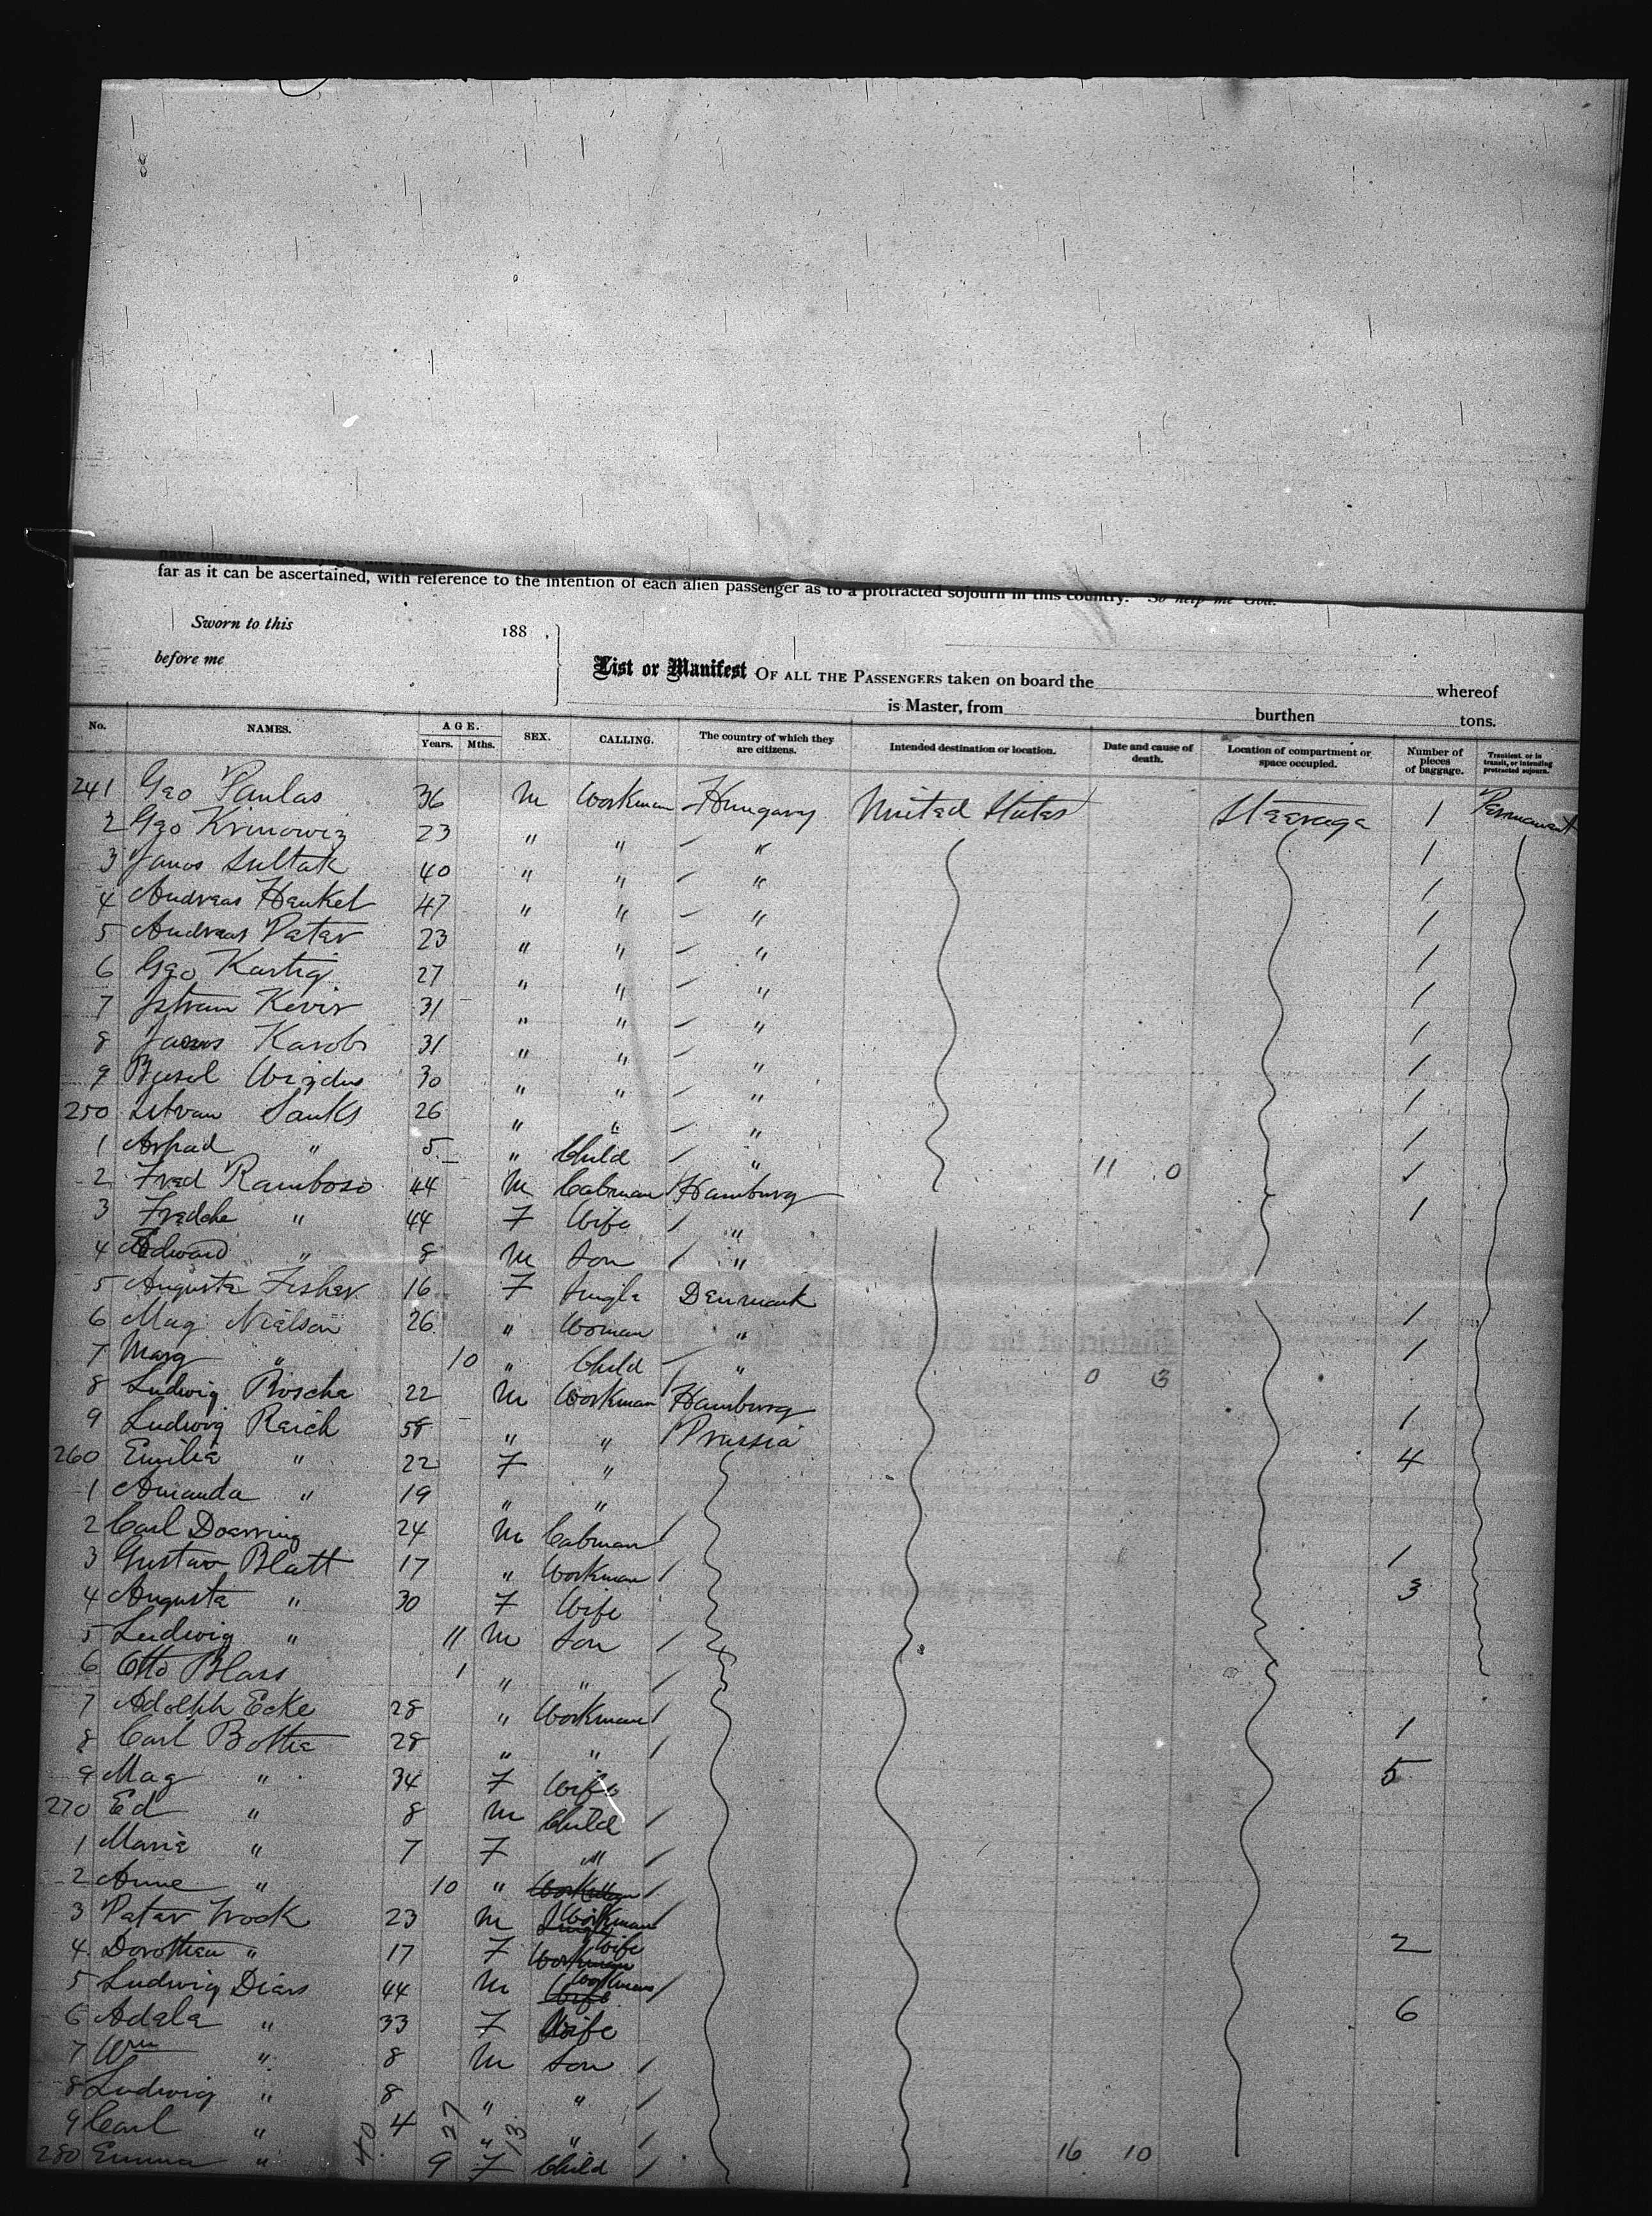 far as it can be ascertained, with reference to the intention of each alien passenger as to a protracted sojourn in this country. So help me God.
Sworn to this 188 ,
before me
List or Manifest OF ALL THE PASSENGERS taken on board the whereof
is Master, from burthen tons.
No. NAMES. AGE. Years. Mths. SEX. CALLING. The country of which they are citizens. Intended destination or location. Date and cause of death. Location of compartment or space occupied. Number of pieces of baggage. Transient, or in transit, or intending protracted sojourn.
241 Geo Paulas 36 M Workman Hungary United States Steerage 1 Permanent
2 Geo Krinowiz 23 " " " 1
3 Janos Sultak 40 " " " 1
4 Andreas Henkel 47 " " " 1
5 Andreas Peter 23 " " " 1
6 Geo Kartig 27 " " " 1
7 Istvan Kevir 31 " " " 1
8 Janos Karobi 31 " " " 1
9 30 " " " 1
250 Istvan Sanks 26 " " " 1
1 Arpad " 5 " Child " 11 0 1
2 Fred Ramboso 44 M Cabman Hamburg 1
3 Fredche " 44 F Wife "
4 Edward " 8 M Son "
5 Augusta Fisher 16 F Single Denmark 1
6 Mag Nielson 26 " Woman " 1
7 Marg " 10 " Child " 0 3
8 Ludwig Roscha 22 M Workman Hamburg 1
9 Ludwig Reich 58 " " Prussia 4
260 Emilie " 22 F "
1 Amanda " 19 " "
2 Carl Doerring 24 M Cabman 1
3 Gustav Blatt 17 " Workman 3
4 Augusta " 30 F Wife
5 Ludwig " 11 M Son
6 Otto Blass 1 " "
7 Adolph Ecke 28 " Workman 1
8 Carl Bothe 28 " " 5
9 Mag " 34 F Wife
270 Ed " 8 M Child
1 Marie " 7 F "
2 Anne " 10 " Workman
3 Peter Trock 23 M Single Workman 2
4 Dorothea " 17 F Workman Wife
5 Ludwig Diars 44 M Wife Workman 6
6 Adele " 33 F Wife
7 Wm " 8 M Son
8 Ludwig " 8 " "
9 Carl " 4 " "
280 Emma " 9 F Child 16 10
40 27 13